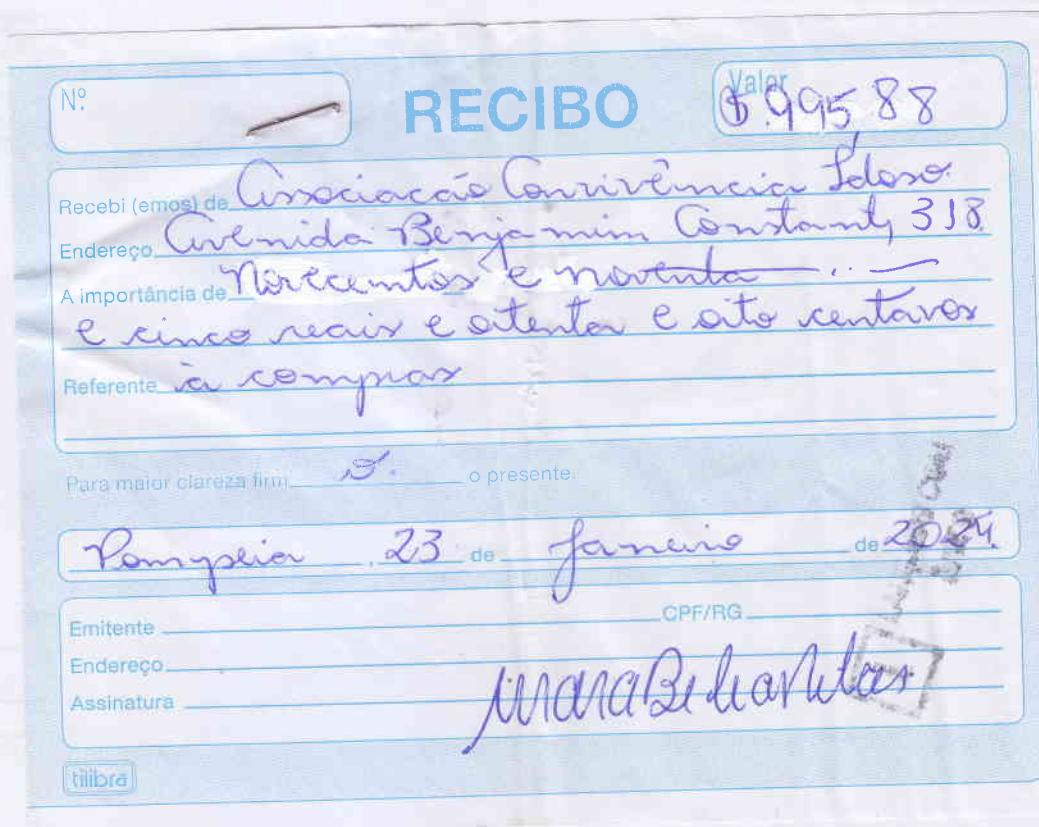 Nº
RECIBO
Valor
$.995,88
Recebi (emos) de Associacão Convivência Idoso.
Endereço Avenida Benjamim Constant, 318.
A importância de Novecentos e noventa
e cinco reais e oitenta e oito centavos
Referente à compras
Para maior clareza firm o presente.
Pompeia, 23 de Janeiro de 2024.
Emitente CPF/RG
Endereço
Assinatura
tilibra